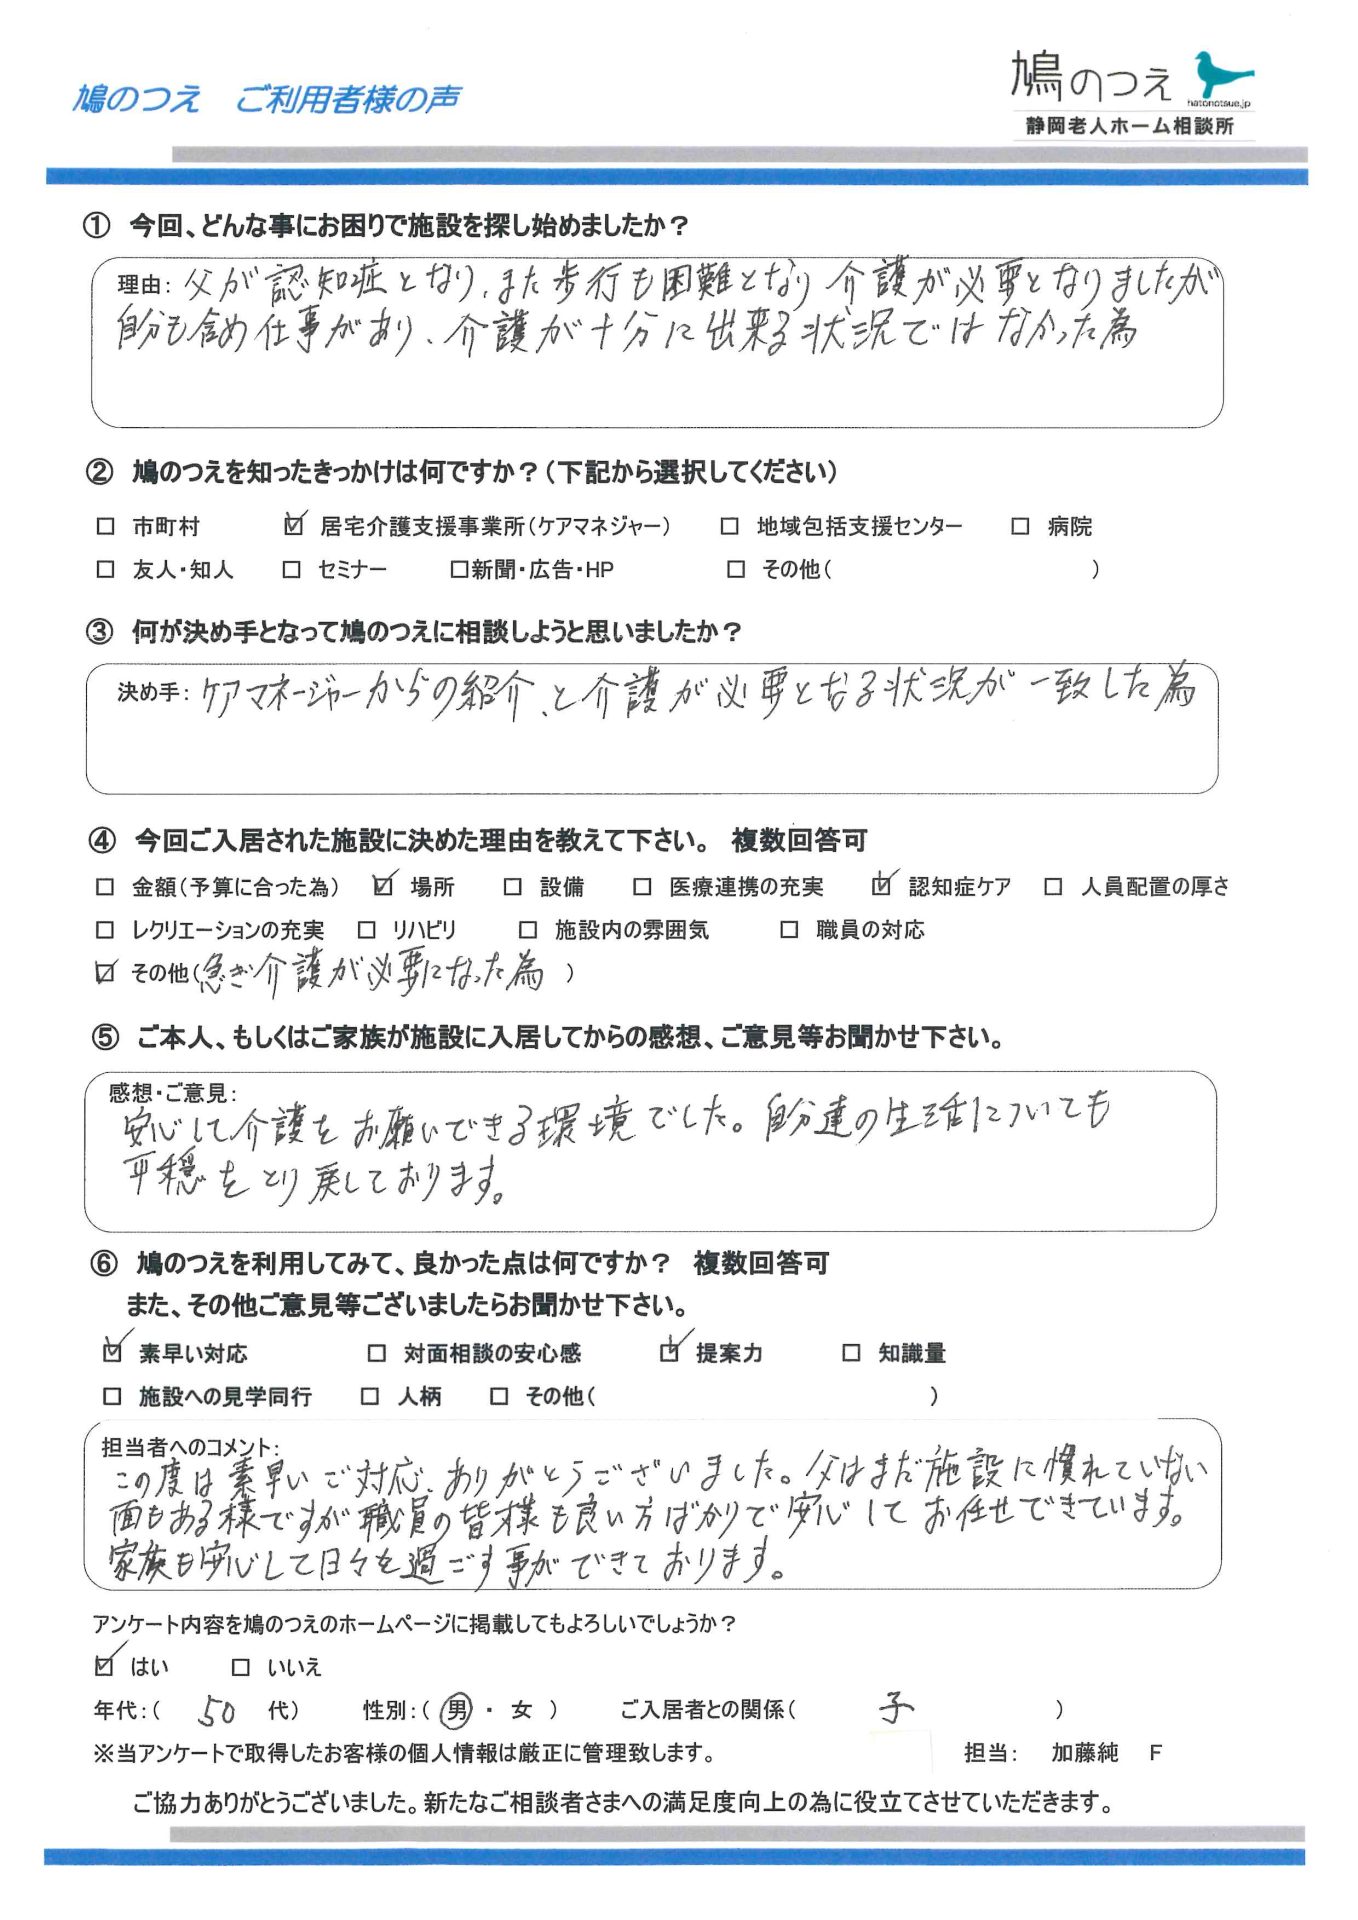 鳩のつえ　ご利用者様の声
鳩のつえ
hatonotsue.jp
静岡老人ホーム相談所
① 今回、どんな事にお困りで施設を探し始めましたか？
理由: 父が認知症となり、また歩行も困難となり介護が必要となりましたが
自分も含め仕事があり、介護が十分に出来る状況ではなかった為
② 鳩のつえを知ったきっかけは何ですか？(下記から選択してください)
□ 市町村 ☑ 居宅介護支援事業所(ケアマネジャー) □ 地域包括支援センター □ 病院
□ 友人・知人 □ セミナー □新聞・広告・HP □ その他( )
③ 何が決め手となって鳩のつえに相談しようと思いましたか？
決め手: ケアマネージャーからの紹介、と介護が必要となる状況が一致した為
④ 今回ご入居された施設に決めた理由を教えて下さい。 複数回答可
□ 金額(予算に合った為) ☑ 場所 □ 設備 □ 医療連携の充実 ☑ 認知症ケア □ 人員配置の厚さ
□ レクリエーションの充実 □ リハビリ □ 施設内の雰囲気 □ 職員の対応
☑ その他(急ぎ介護が必要になった為 )
⑤ ご本人、もしくはご家族が施設に入居してからの感想、ご意見等お聞かせ下さい。
感想・ご意見:
安心して介護をお願いできる環境でした。自分達の生活についても
平穏をとり戻しております。
⑥ 鳩のつえを利用してみて、良かった点は何ですか？ 複数回答可
また、その他ご意見等ございましたらお聞かせ下さい。
☑ 素早い対応 □ 対面相談の安心感 ☑ 提案力 □ 知識量
□ 施設への見学同行 □ 人柄 □ その他( )
担当者へのコメント:
この度は素早いご対応、ありがとうございました。父はまだ施設に慣れていない
面もある様ですが職員の皆様も良い方ばかりで安心してお任せできています。
家族も安心して日々を過ごす事ができております。
アンケート内容を鳩のつえのホームページに掲載してもよろしいでしょうか？
☑ はい □ いいえ
年代:( 50 代) 性別:( 男 ・ 女 ) ご入居者との関係( 子 )
※当アンケートで取得したお客様の個人情報は厳正に管理致します。 担当: 加藤純 F
ご協力ありがとうございました。新たなご相談者さまへの満足度向上の為に役立てさせていただきます。